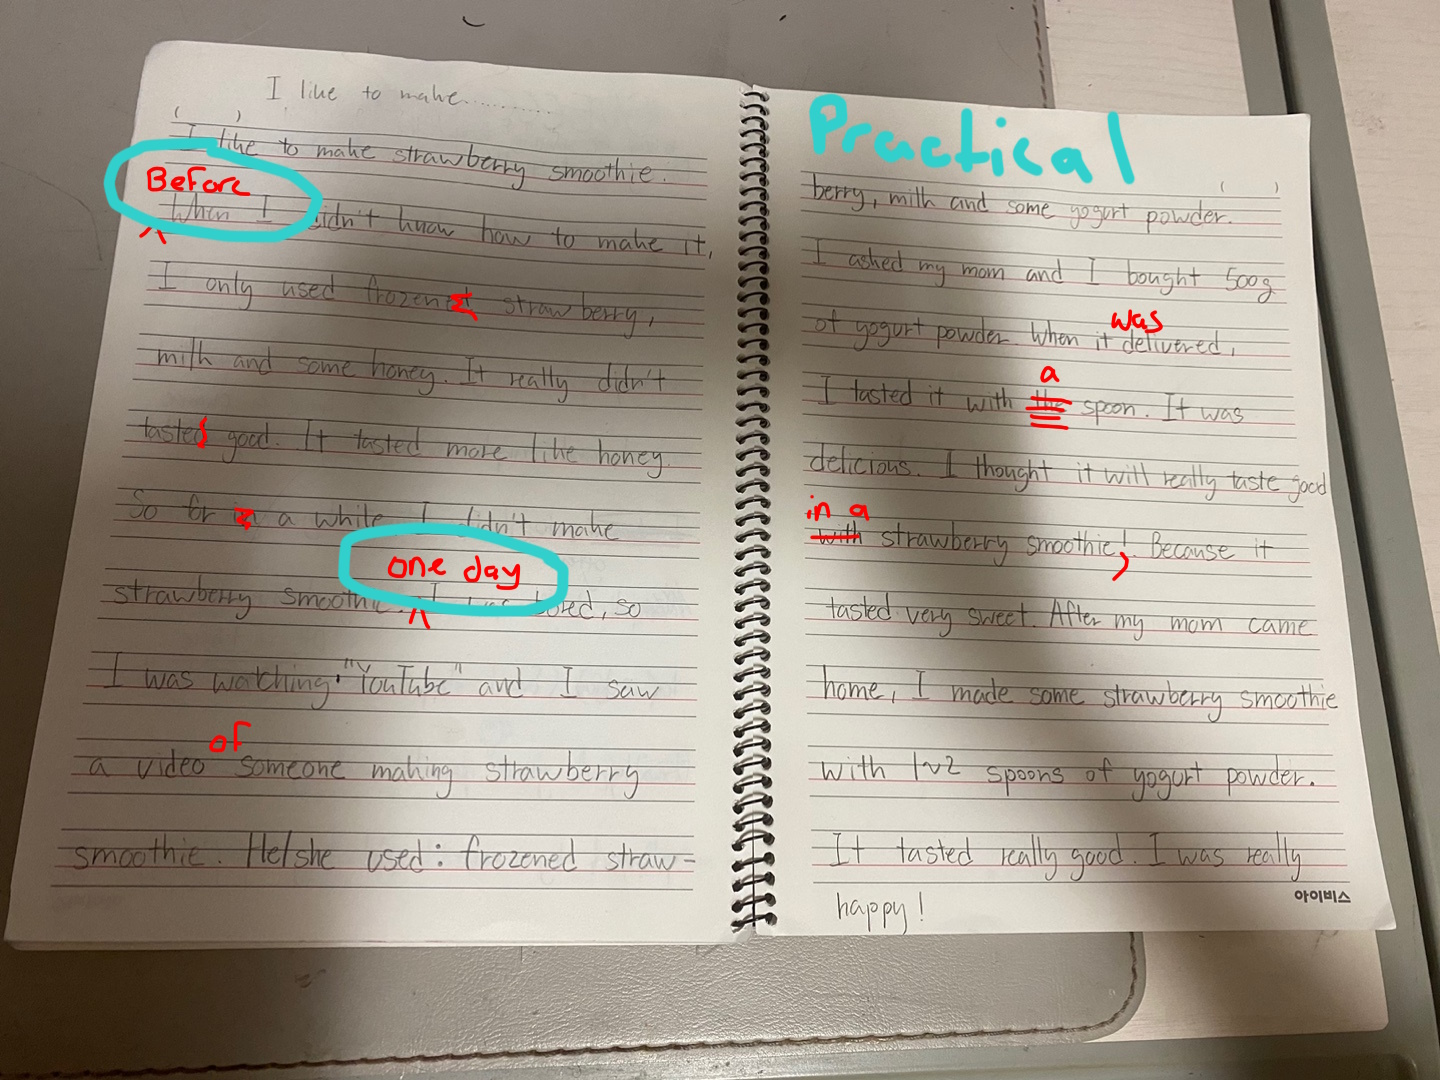 I like to make............
( )
I like to make strawberry smoothie.
Before
When I didn't know how to make it,
I only used frozened strawberry,
milk and some honey. It really didn't
tasted good. It tasted more like honey.
So for in a while I didn't make
one day
strawberry smoothie. I was bored, so
I was watching "YouTube" and I saw
of
a video someone making strawberry
smoothie. He/she used: frozened straw-
Practical
( )
berry, milk and some yogurt powder.
I asked my mom and I bought 500g
was
of yogurt powder. When it delivered,
a
I tasted it with the spoon. It was
delicious. I thought it will really taste good
in a
with strawberry smoothie!, Because it
tasted very sweet. After my mom came
home, I made some strawberry smoothie
with 1~2 spoons of yogurt powder.
It tasted really good. I was really
happy!
아이비스